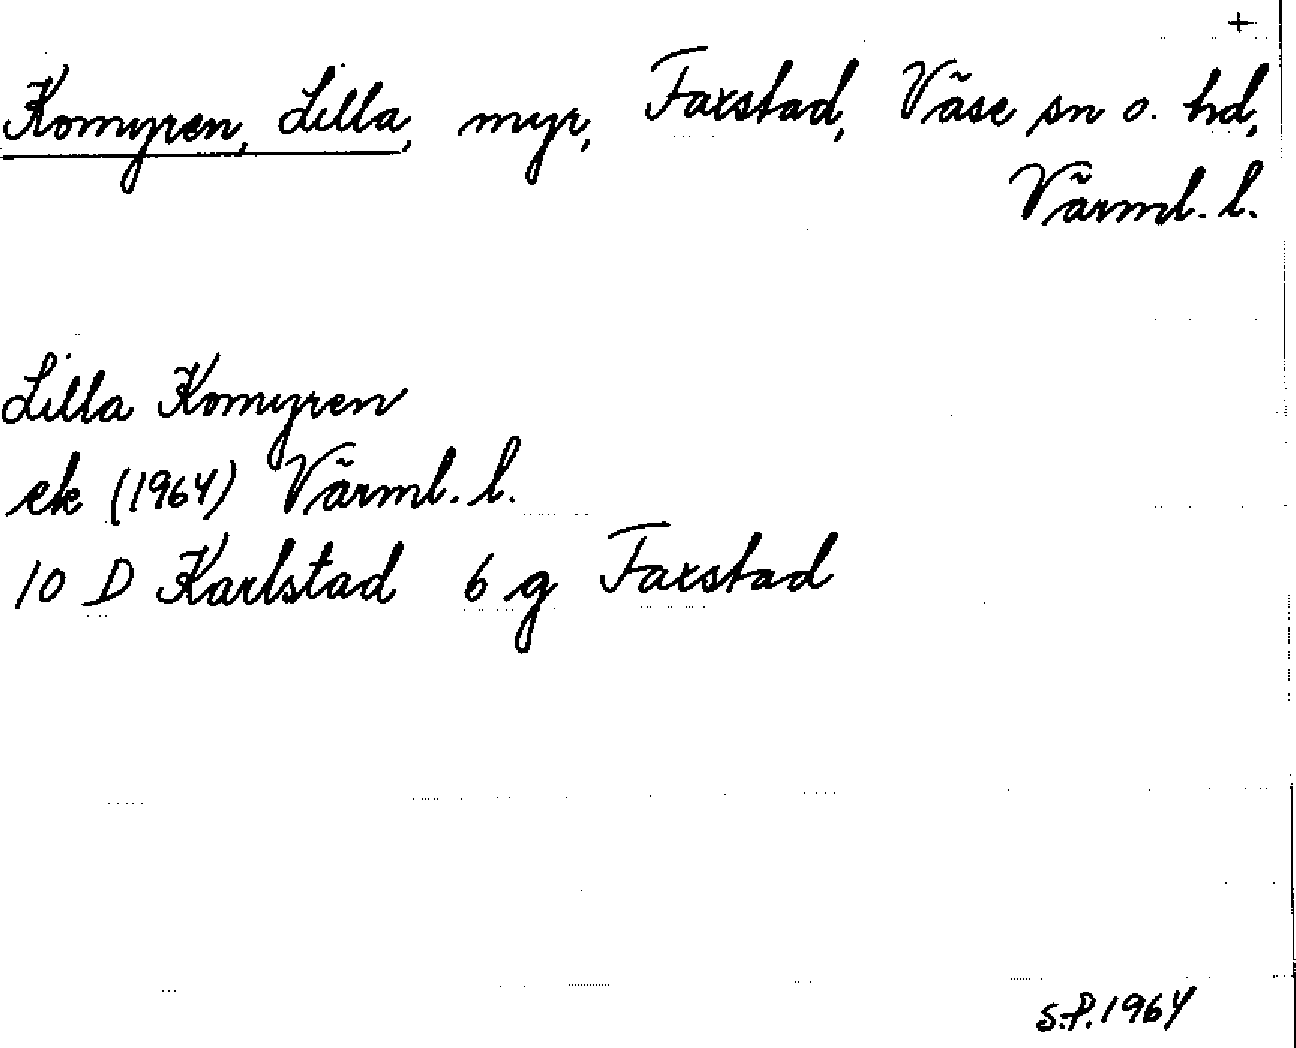 +
Komyren, Lilla, myr, Faxstad, Väse sn o. hd,
Värml. l.
Lilla Komyren
ek (1964) Värml. l.
10 D Karlstad 6 g Faxstad
S.P. 1964